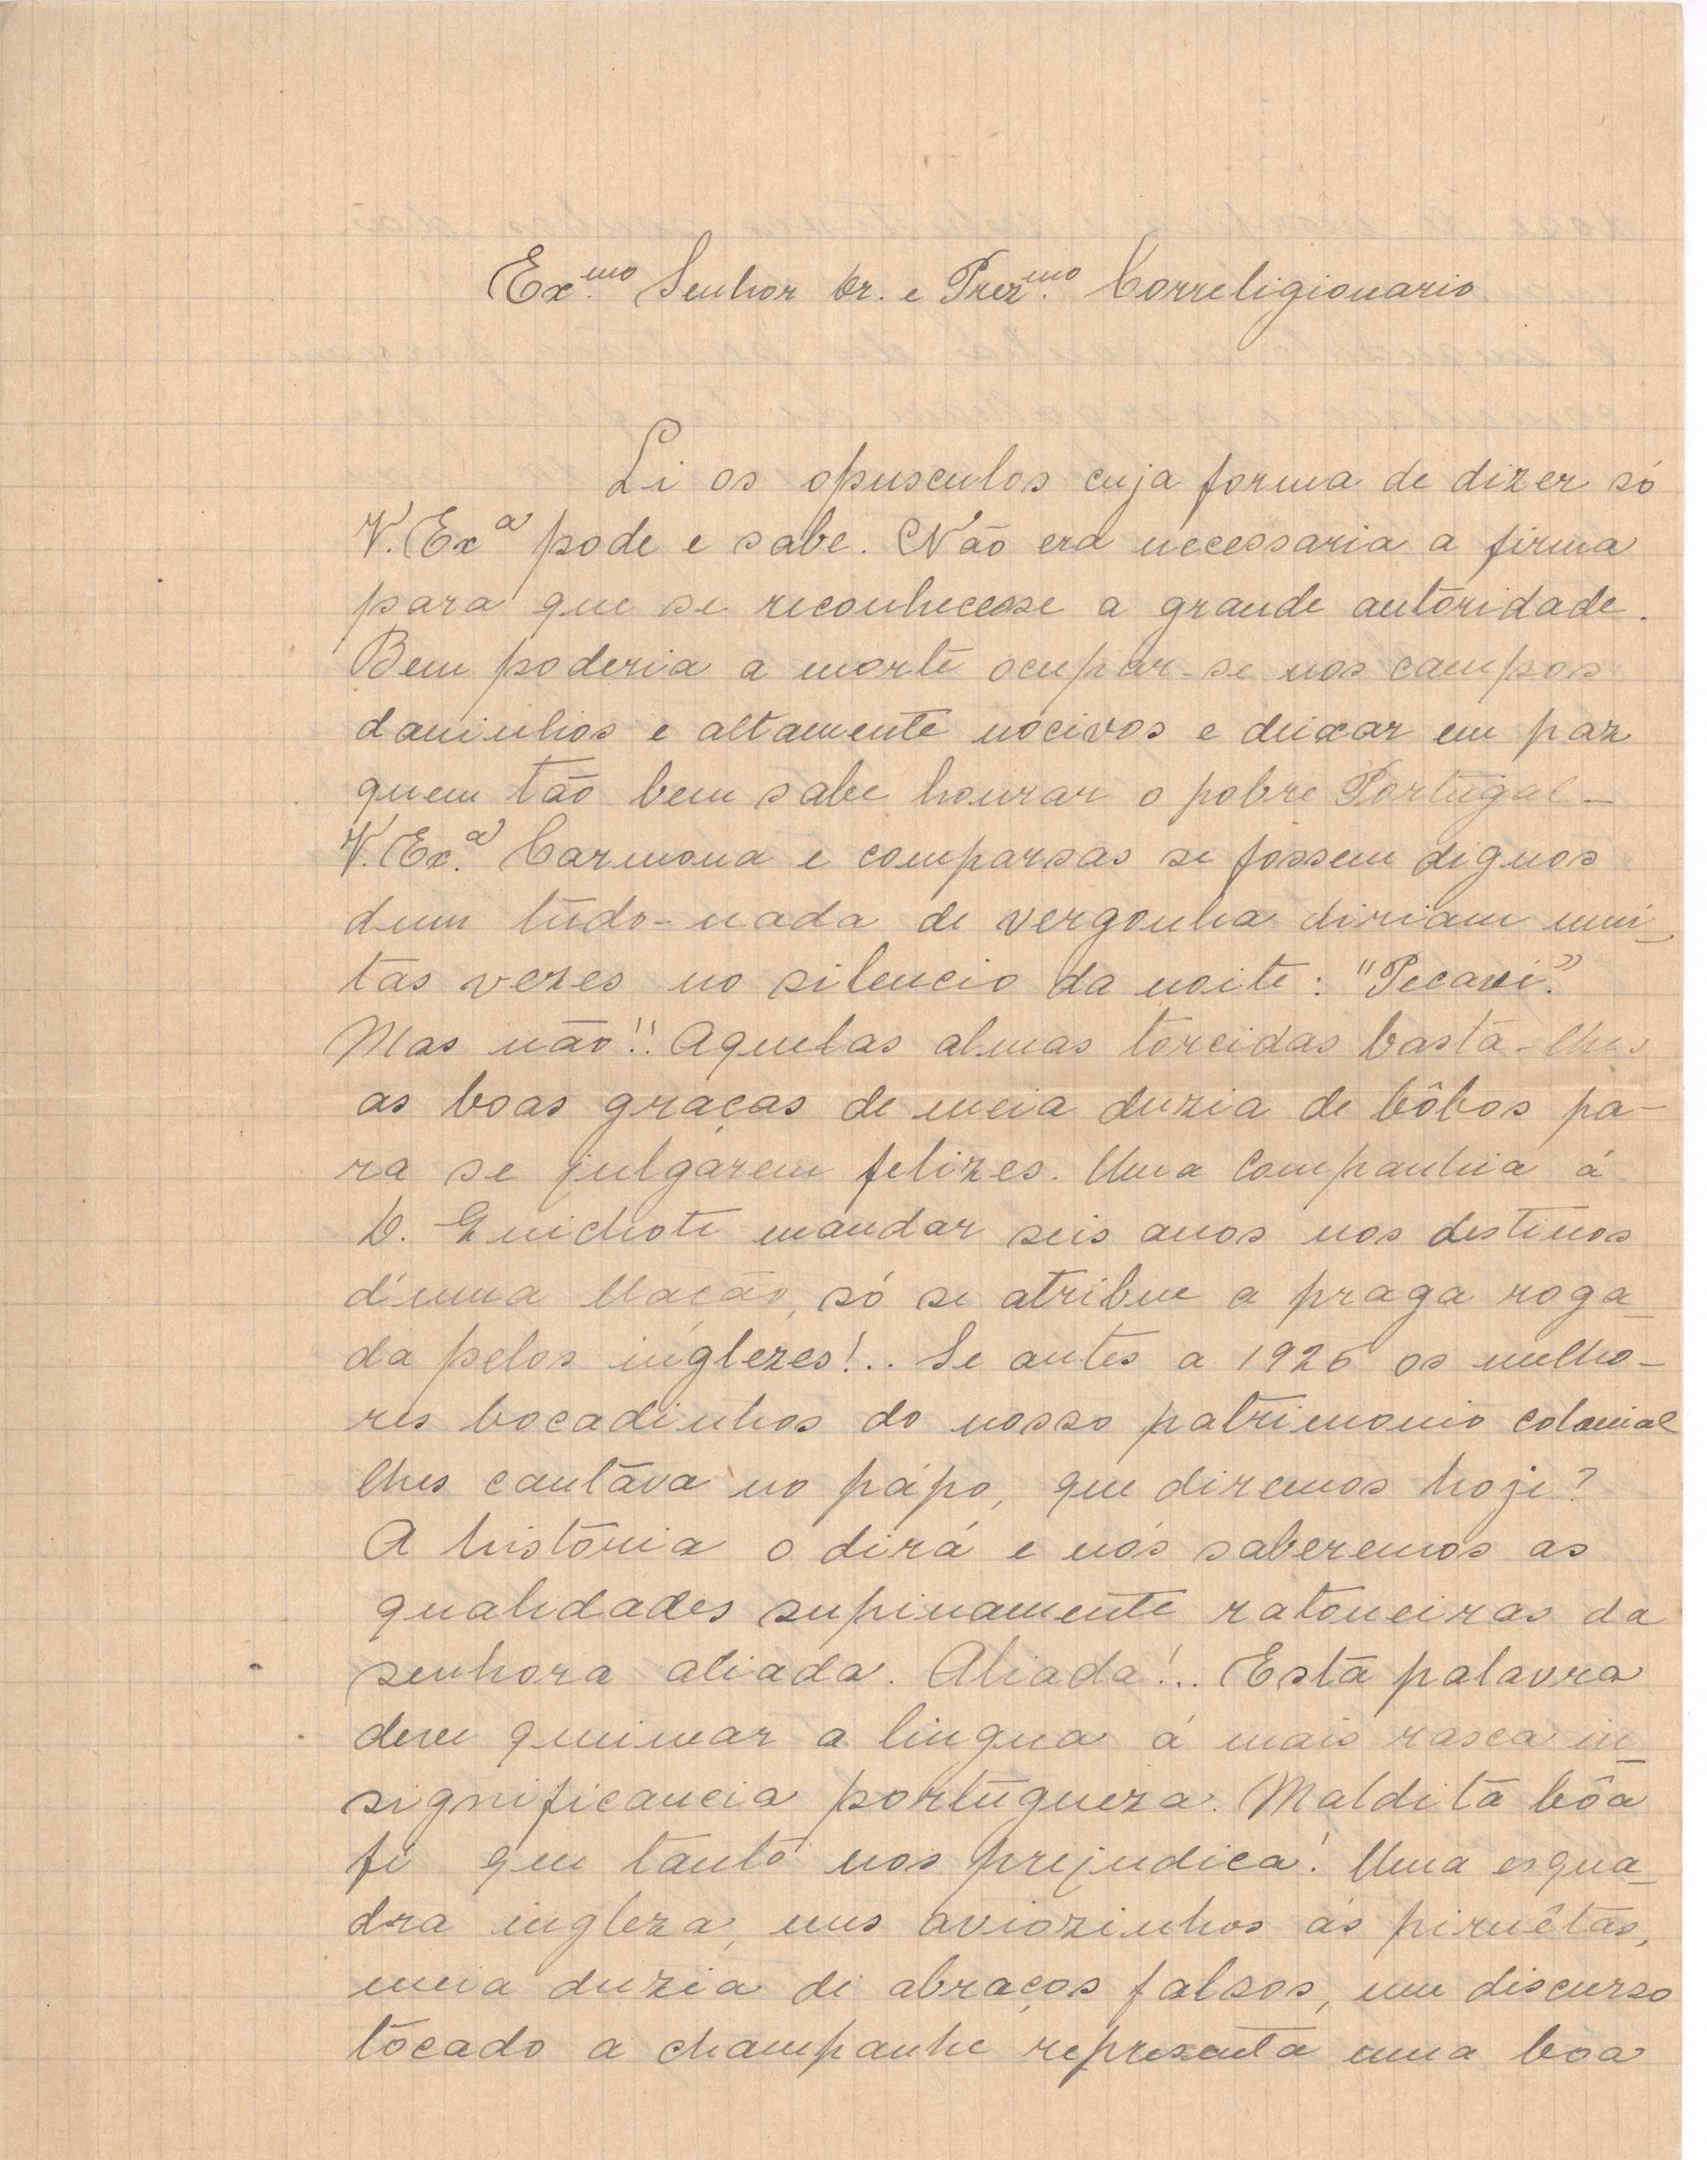 Ex.mo Senhor Dr. e Prez.mo Correligionario
Li os opusculos cuja forma de dizer só
V. Exª pode e sabe. Não era necessaria a firma
para que se reconhecesse a grande autoridade.
Bem poderia a morte ocupar-se nos campos
daninhos e altamente nocivos e deixar em paz
quem tão bem sabe honrar o pobre Portugal_
V. Ex.ª Carmona e comparsas se fossem dignos
dum tudo-nada de vergonha diriam mui_
tas vezes no silencio da noite: "Pecavi".
Mas não!! Aquelas almas torcidas basta-lhes
as boas graças de meia duzia de bôbos pa-
ra se julgarem felizes. Uma Companhia á
D. Quichote mandar seis anos nos destinos
d'uma Nação, só se atribue a praga roga_
da pelos inglezes!.. Se antes a 1926 os melho-
res bocadinhos do nosso patrimonio colonial
lhes cantava no pápo, que diremos hoje?
A história o dirá e nós saberemos as
qualidades supinamente ratoneiras da
senhora aliada. Aliada!.. Esta palavra
deve queimar a lingua á mais rasca in_
significancia portugueza. Maldita bôa
fé que tanto nos prejudica! Uma esqua_
dra ingleza, uns aviozinhos ás piruêtas,
meia duzia de abraços falsos, um discurso
tocado a champanhe representa uma boa